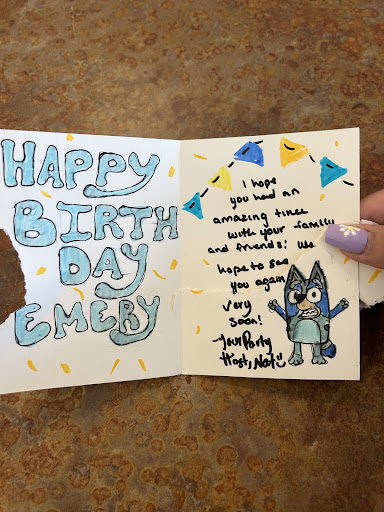 HAPPY
BIRTH
DAY
EMERY
I hope
you had an
amazing time
with your family
and friends! We
hope to see
you again
very
soon!
-Your Party
Host, Nat